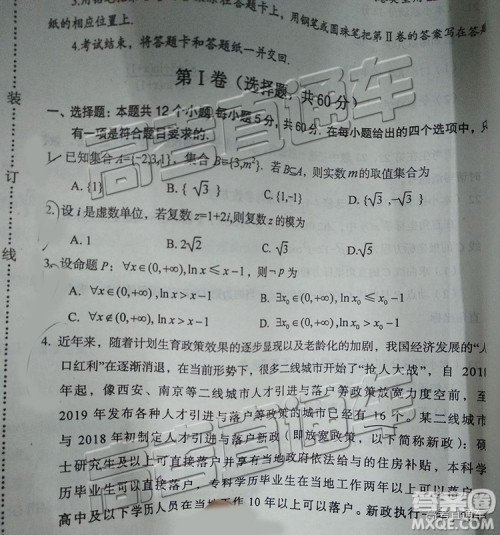 纸的相应位置上.
用钢笔或圆珠笔把第Ⅱ卷的答案写在答
4.考试结束，将答题卡和答题纸一并交回.
第Ⅰ卷（选择题，共60分）
一、选择题：本题共12个小题，每小题5分，共60分．在每小题给出的四个选项中，只
有一项是符合题目要求的．
1. 已知集合 A={-2,3,1}，集合 B={3,m²}．若 B⊆A，则实数 m 的取值集合为
A. {1} B. {√3} C. {1,-1} D. {√3,-√3}
2. 设 i 是虚数单位，若复数 z=1+2i,则复数 z 的模为
A. 1 B. 2√2 C. √3 D. √5
3. 设命题 P：∀x∈(0,+∞),ln x≤x-1，则¬p 为
A. ∀x∈(0,+∞),ln x>x-1 B. ∃x₀∈(0,+∞),ln x₀≤x₀-1
C. ∀x∉(0,+∞),ln x>x-1 D. ∃x₀∈(0,+∞),ln x₀>x₀-1
4. 近年来，随着计划生育政策效果的逐步显现以及老龄化的加剧，我国经济发展的“人
口红利”在逐渐消退，在当前形势下，很多二线城市开始了“抢人大战”，自 201
年起，像西安、南京等二线城市人才引进与落户等政策放宽力度空前，至
2019 年发布各种人才引进与落户等政策的城市已经有 16 个。某二线城市
与 2018 年初制定人才引进与落户新政（即放宽政策，以下简称新政）：硕
士研究生及以上可直接落户并享有当地政府依法给与的住房补贴，本科学
历毕业生可以直接落户，专科学历毕业生在当地工作两年以上可以落户，
高中及以下学历人员在当地工作 10 年以上可以落户。新政执行
装
订
线
高考直通车
高考直通车
高考直通车
MXQE.COM